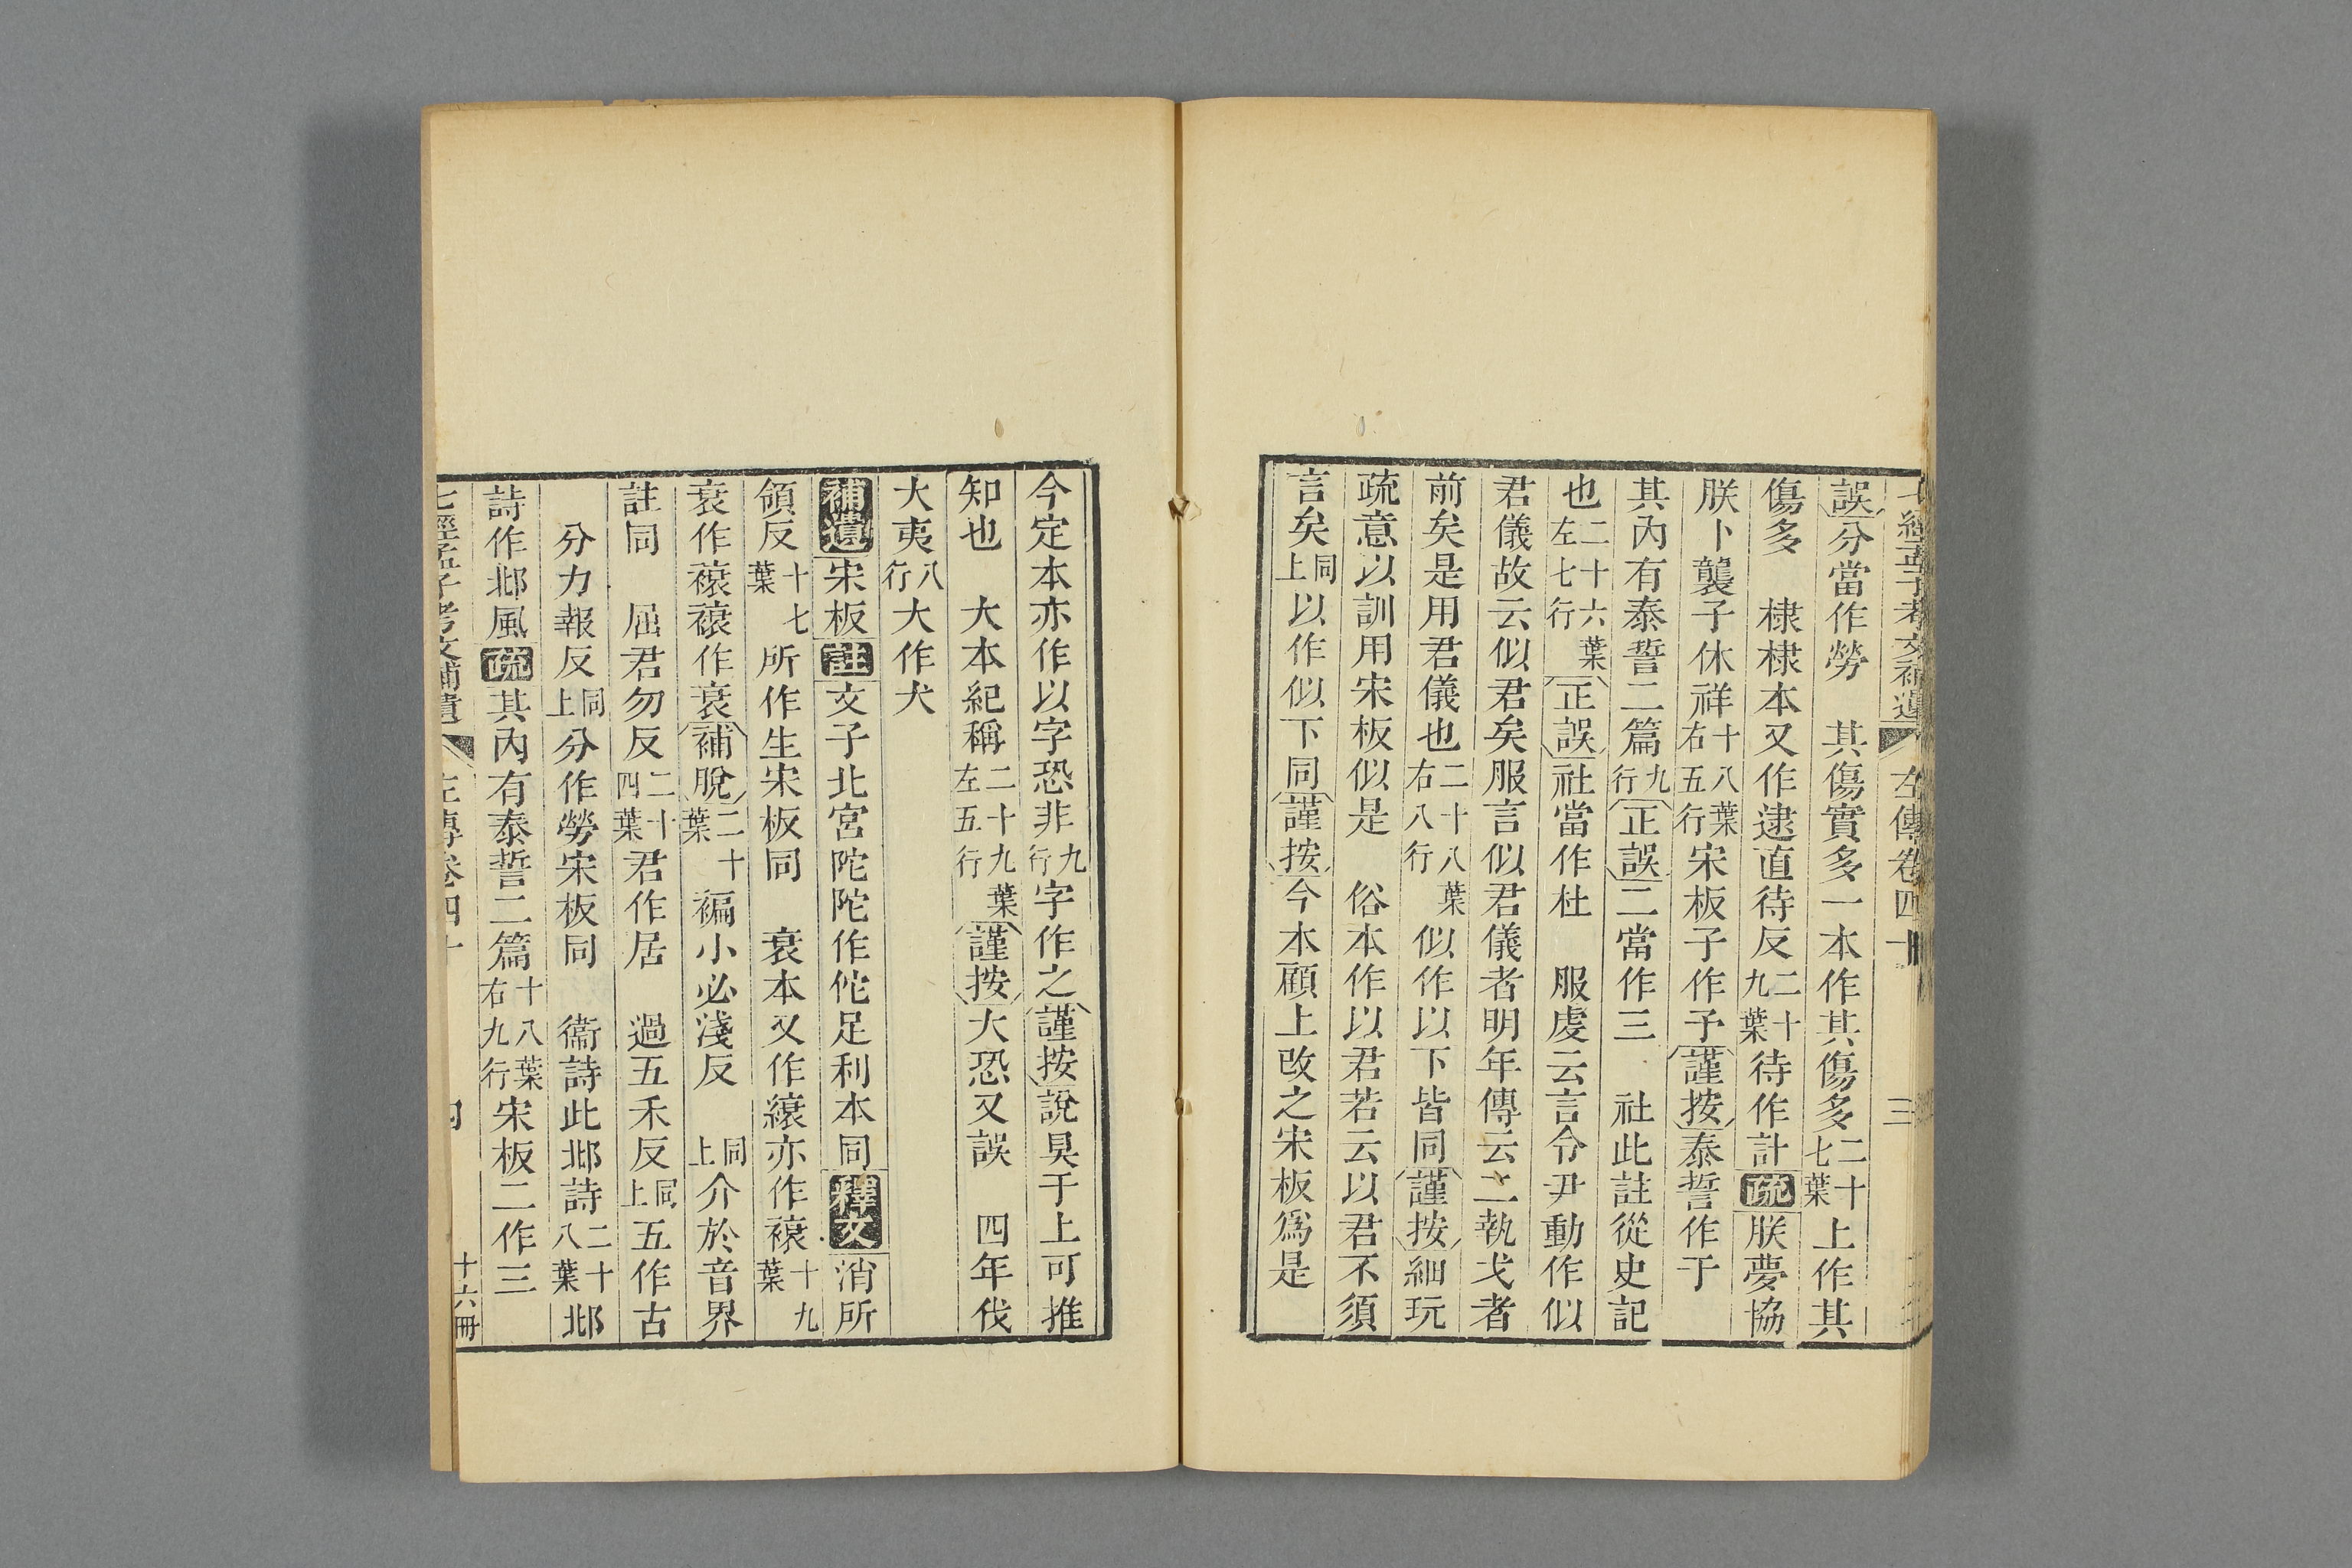 七經孟子考文補遺 左傳卷四十 三
誤分當作勞 其傷實多一本作其傷多二十七葉上作其
傷多 棣棣本又作逮直待反二十九葉待作計疏朕夢協
朕卜襲子休祥十八葉右五行宋板子作予謹按泰誓作于
其內有泰誓二篇九行正誤二當作三 社此註從史記
也二十六葉左七行正誤社當作杜 服虔云言令尹動作似
君儀故云似君矣服言似君儀者明年傳云二執戈者
前矣是用君儀也二十八葉右八行似作以下皆同謹按細玩
疏意以訓用宋板似是 俗本作以君若云以君不須
言矣同上以作似下同謹按今本顧上改之宋板爲是
今定本亦作以字恐非九行字作之謹按說旲于上可推
知也 大本紀稱二十九葉左五行謹按大恐又誤 四年伐
大夷八行大作犬
補遺宋板註文子北宮陀陀作佗足利本同釋文消所
領反十七葉所作生宋板同 衰本又作縗亦作䙑十九葉
衰作䙑䙑作衰補脫二十葉褊小必淺反 同上介於音界
註同 屈君勿反二十四葉君作居 過五禾反同上五作古
分力報反同上分作勞宋板同 衞詩此邶詩二十八葉邶
詩作邶風疏其內有泰誓二篇十八葉右九行宋板二作三
七經孟子考文補遺 左傳卷四十 四 十六冊